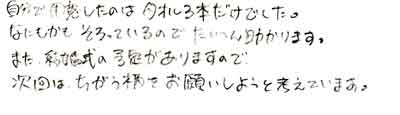 自分で用意したのはタオル3本だけでした。
なにもかもそろっているのでたいへん助かります。
また、結婚式の予定がありますので
次回は、ちがう柄をお願いしようと考えています。